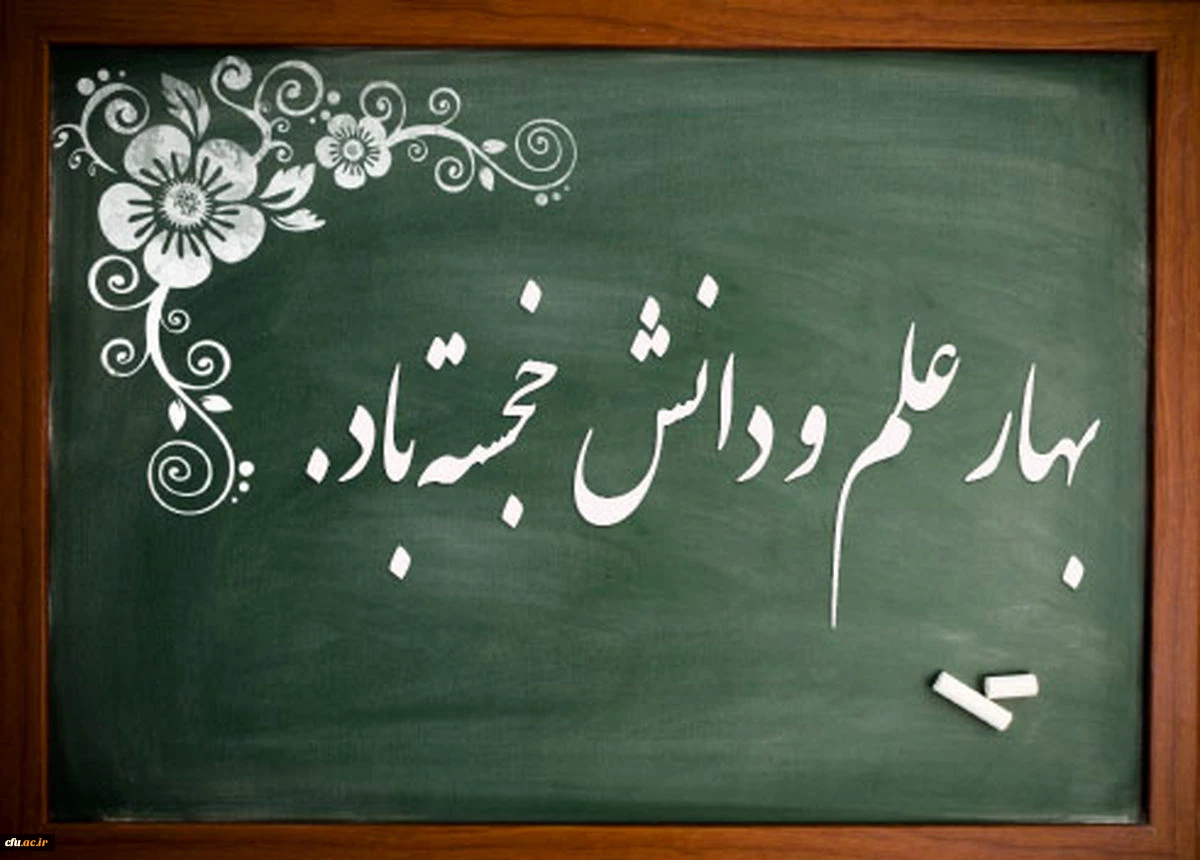 بهار علم و دانش خجسته باد.
cfu.ac.ir